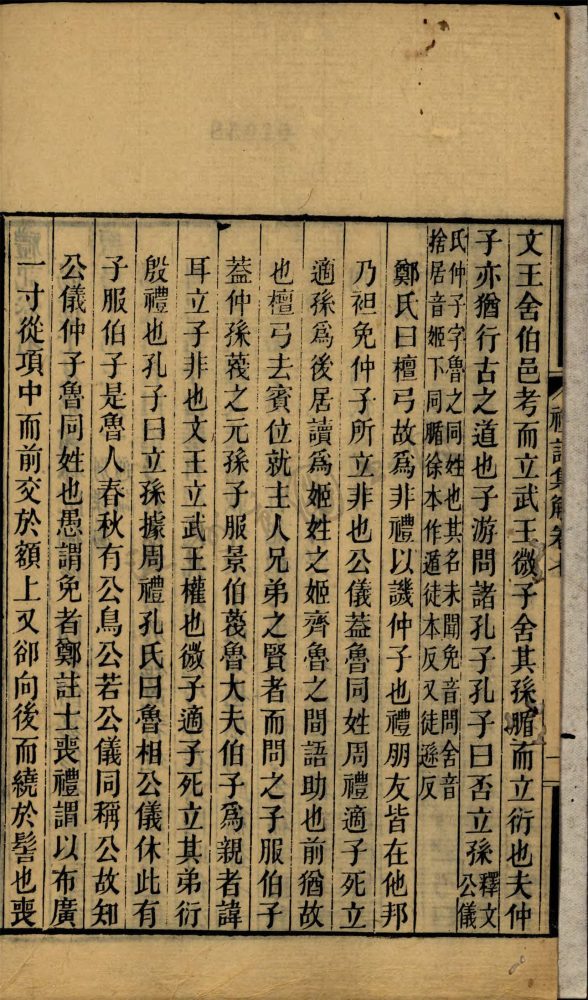 文王舍伯邑考而立武王微子舍其孫腯而立衍也夫仲
子亦猶行古之道也子游問諸孔子孔子曰否立孫釋文公儀
氏仲子字魯之同姓也其名未聞免音問舍音
捨居音姬下同腯徐本作遁徒本反又徒遜反
鄭氏曰檀弓故爲非禮以譏仲子也禮朋友皆在他邦
乃袒免仲子所立非也公儀葢魯同姓周禮適子死立
適孫爲後居讀爲姬姓之姬齊魯之間語助也前猶故
也檀弓去賓位就主人兄弟之賢者而問之子服伯子
葢仲孫蔑之元孫子服景伯蔑魯大夫伯子爲親者諱
耳立子非也文王立武王權也微子適子死立其弟衍
殷禮也孔子曰立孫據周禮孔氏曰魯相公儀休此有
子服伯子是魯人春秋有公鳥公若公儀同稱公故知
公儀仲子魯同姓也愚謂免者鄭註士喪禮謂以布廣
一寸從項中而前交於額上又卻向後而繞於髻也喪
禮記集解卷七
一